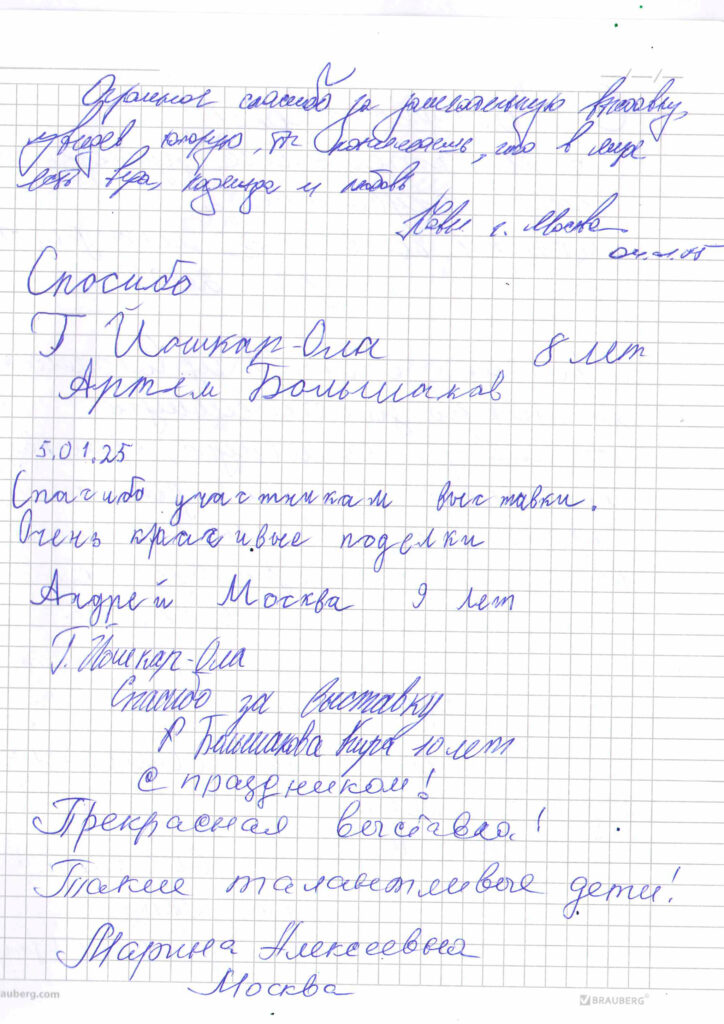 Огромное спасибо за замечательную выставку,
увидев которую, понимаешь, что в мире
есть вера, надежда и любовь
г. Москва
04.01.25
Спосибо
Г Йошкар-Ола 8 лет
Артем Большаков
5.01.25
Спасибо участникам выставки.
Очень красивые поделки
Андрей Москва 9 лет
Г. Йошкар-Ола
Спасибо за выставку
Большакова Кира 10 лет
С праздником!
Прекрасная выставка!
Такие талантливые дети!
Марина Алексеевна
Москва
auberg.com BRAUBERG®